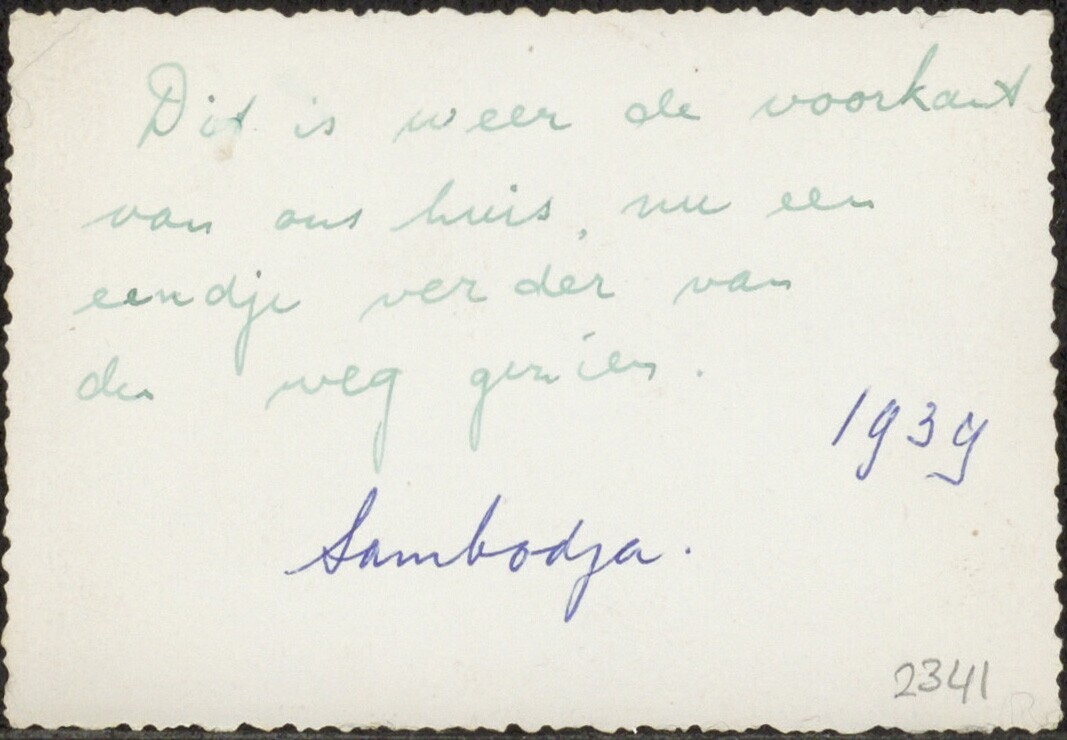 Dit is weer de voorkant
van ons huis, nu een
eendje verder van
den weg gezien.
1939
Sambodja.
2341